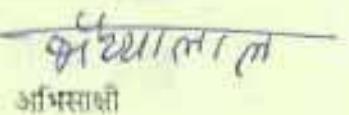 भैय्यालाल
अभिसाक्षी